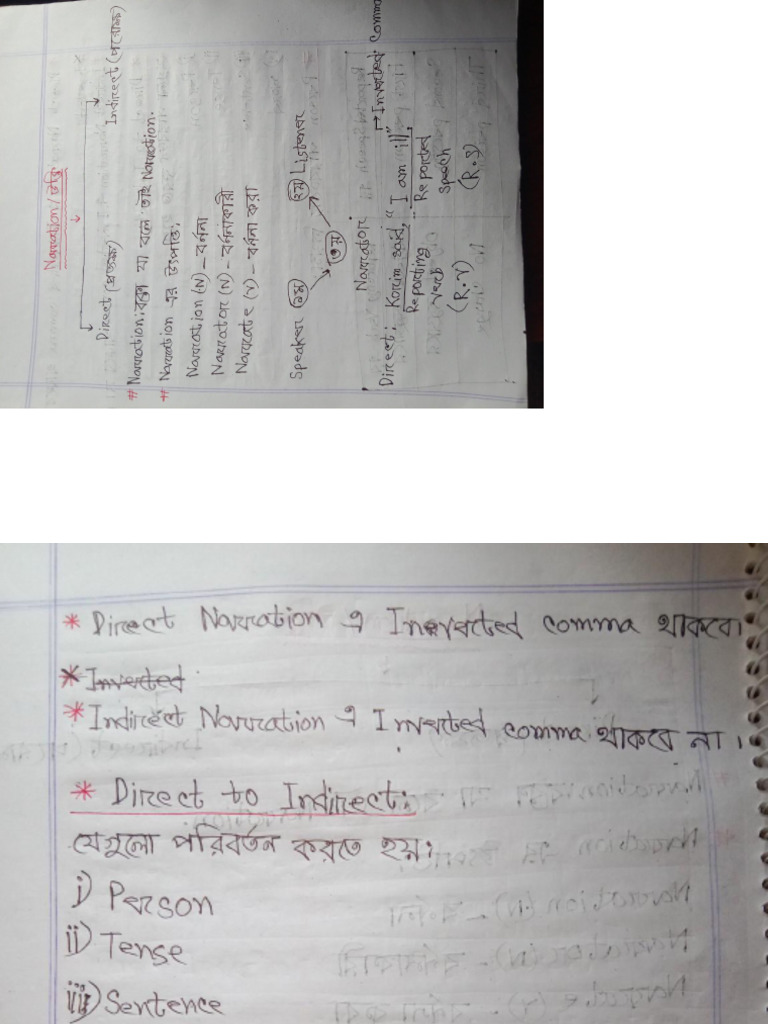 Narration/উক্তি
Direct (প্রত্যক্ষ) Indirect (পরোক্ষ)
# Narration: বক্তা যা বলে তাই Narration.
# Narration এর উৎপত্তি:
Narration (N) – বর্ণনা
Narrator (N) – বর্ণনাকারী
Narrate (V) – বর্ণনা করা
Speaker ১ম ২য় Listener
৩য়
Narrator
Inverted Comma
Direct: Karim said, "I am ill".
Reporting Verb (R.V)
Reported Speech (R.S)
* Direct Narration এ Inverted comma থাকবে।
* Inverted
* Indirect Narration এ Inverted comma থাকবে না।
* Direct to Indirect:
যেগুলো পরিবর্তন করতে হয়:
i) Person
ii) Tense
iii) Sentence